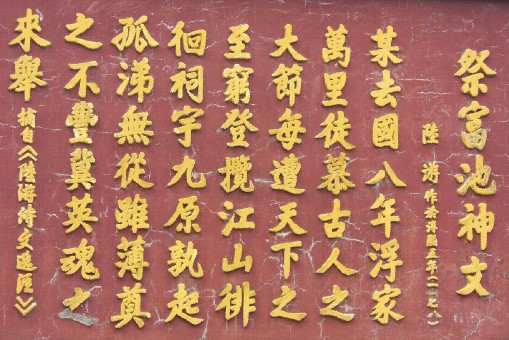 祭富池神文
陸游 作於淳熙五年(一一七八)
某去國八年浮家
萬里徒慕古人之
大節每遭天下之
至窮登攬江山徘
徊祠宇九原孰起
孤涕無從雖薄奠
之不豐冀英魂之
來舉 摘自《陸游詩文選注》